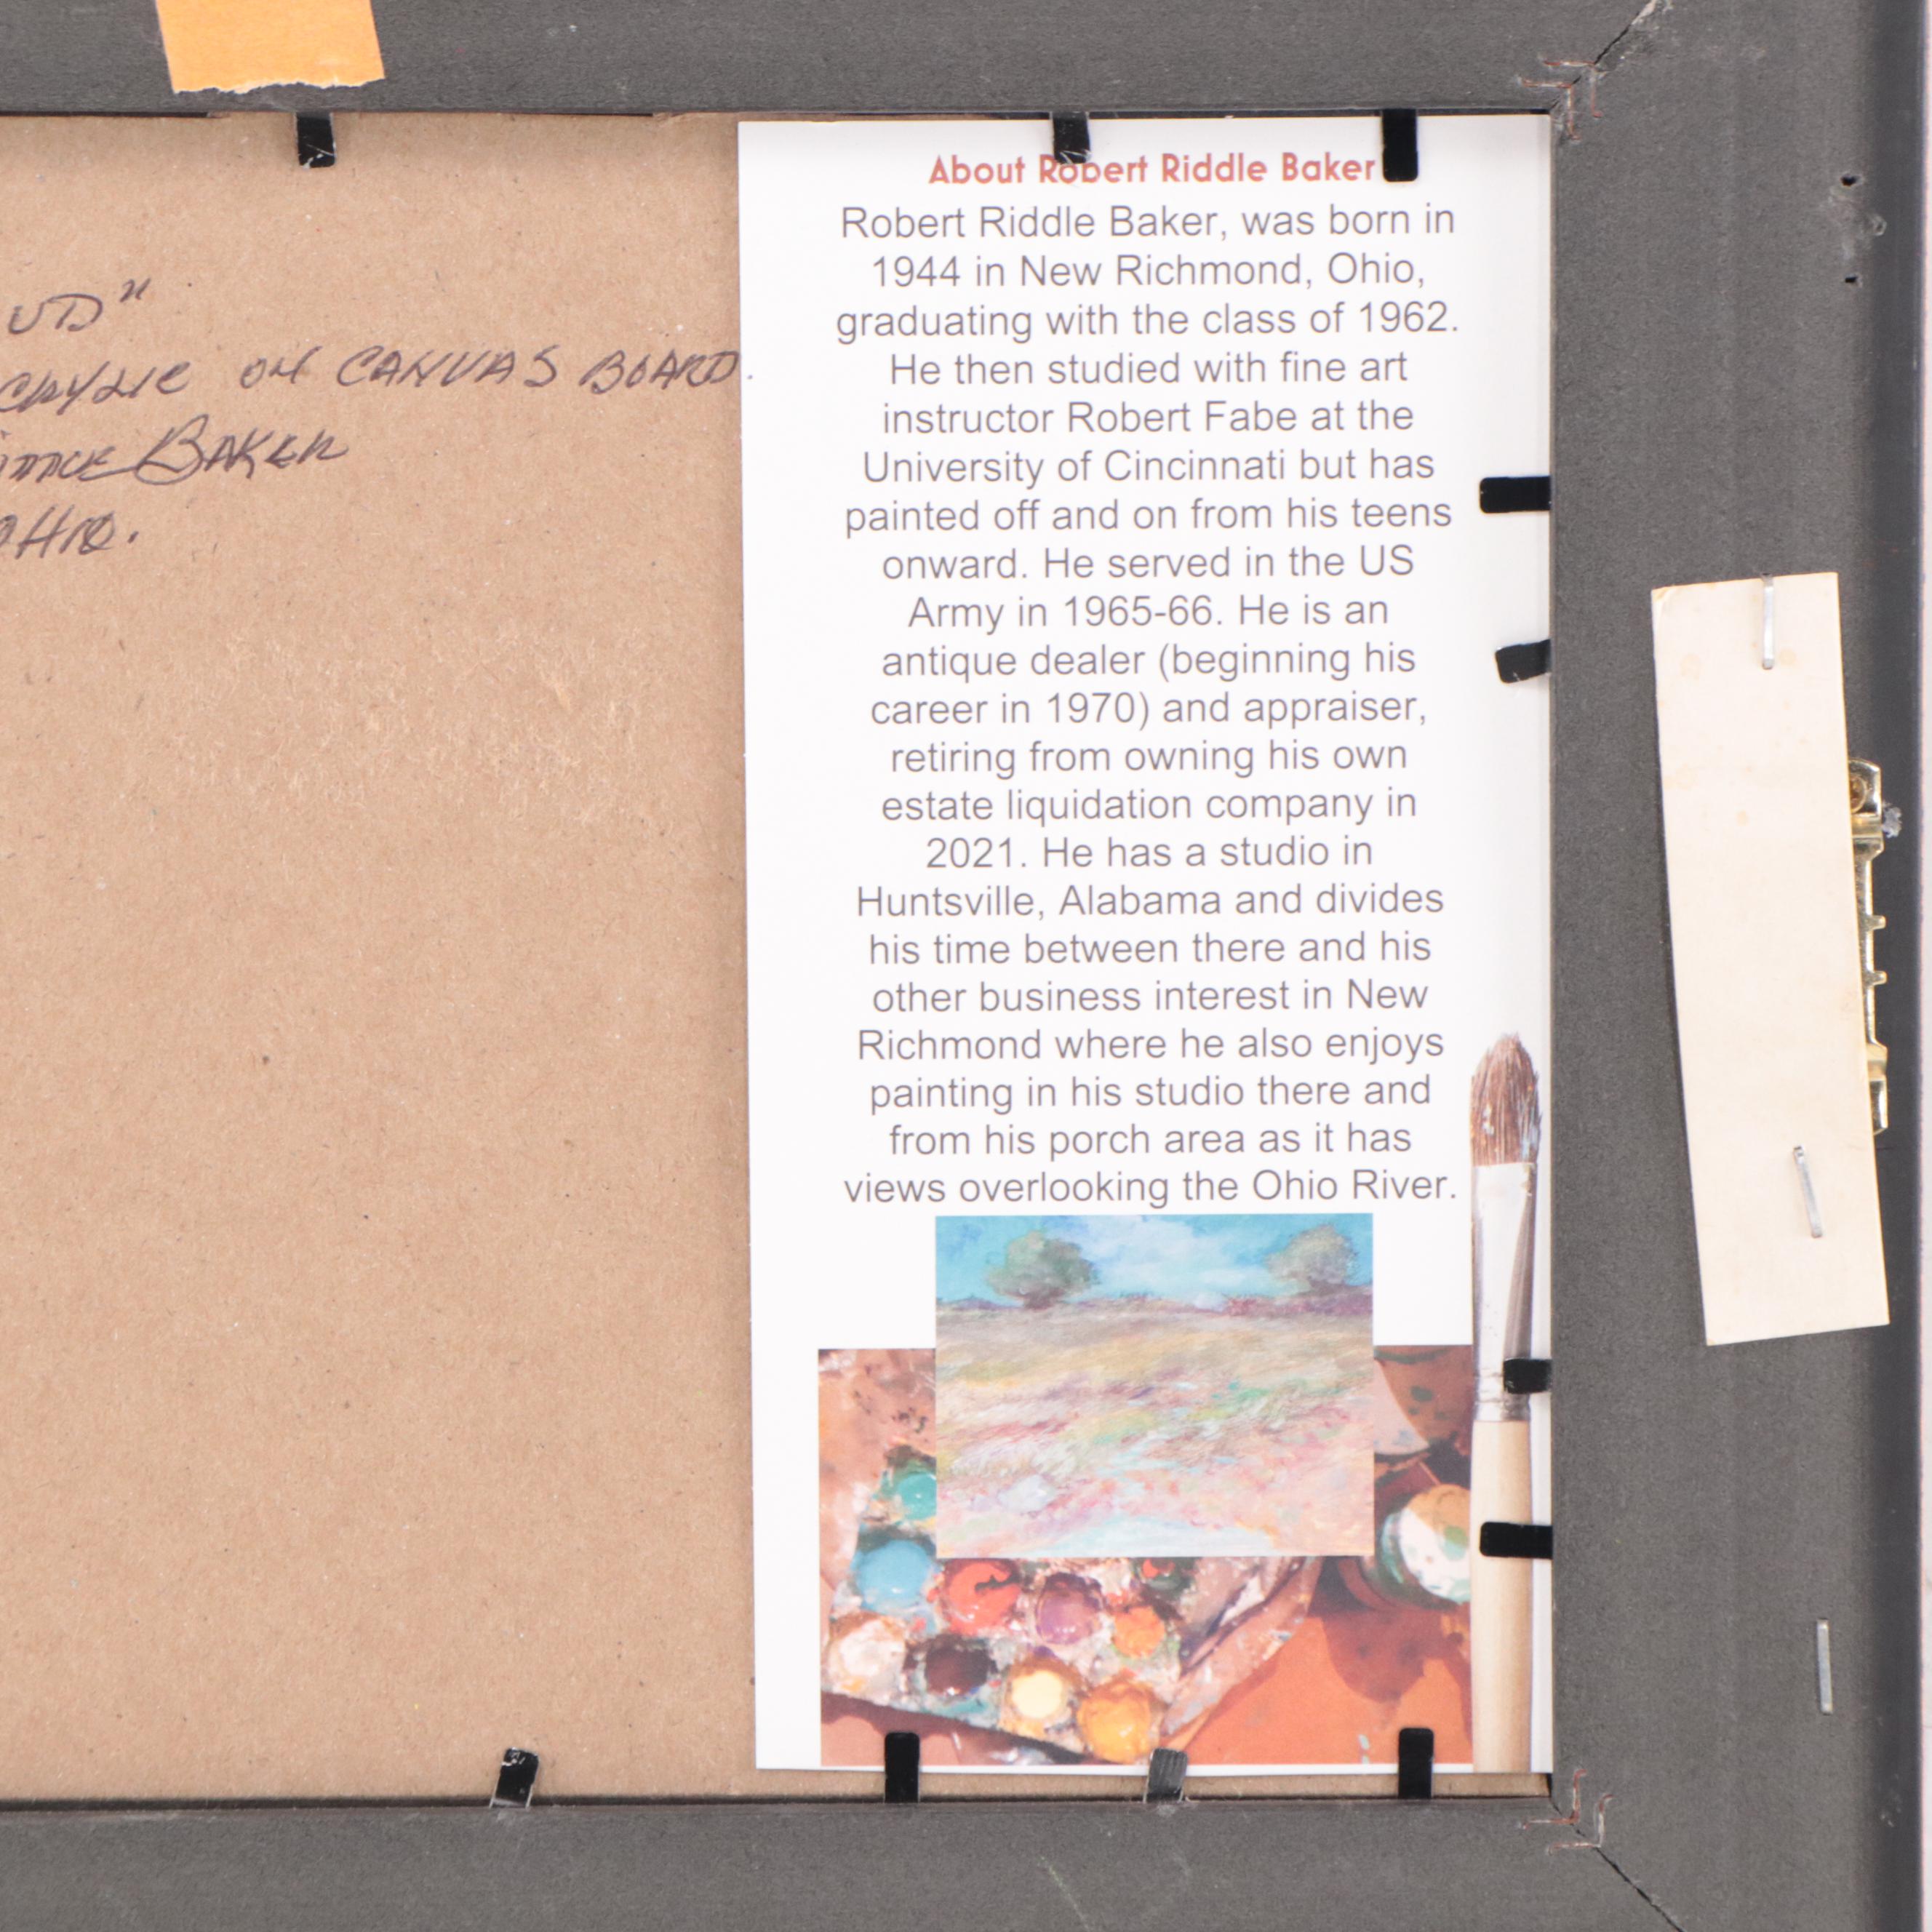 UD"
CRYLIC ON CANVAS BOARD.
BAKER
OHIO.
About Robert Riddle Baker
Robert Riddle Baker, was born in
1944 in New Richmond, Ohio,
graduating with the class of 1962.
He then studied with fine art
instructor Robert Fabe at the
University of Cincinnati but has
painted off and on from his teens
onward. He served in the US
Army in 1965-66. He is an
antique dealer (beginning his
career in 1970) and appraiser,
retiring from owning his own
estate liquidation company in
2021. He has a studio in
Huntsville, Alabama and divides
his time between there and his
other business interest in New
Richmond where he also enjoys
painting in his studio there and
from his porch area as it has
views overlooking the Ohio River.